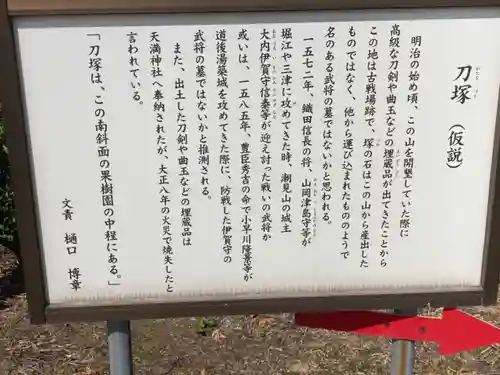 刀塚（仮説）
かたな づか
明治の始め頃、この山を開墾していた際に
高級な刀剣や曲玉などの埋蔵品が出てきたことから
この地は古戦場跡で、塚の石はこの山から産出した
ものではなく、他から運び込まれたもののようで
名のある武将の墓ではないかと思われる。
一五七二年、織田信長の将、山岡津島守等が
堀江や三津に攻めてきた時、潮見山の城主
大内伊賀守信泰等が迎え討った戦いの武将か
或いは、一五八五年、豊臣秀吉の命で小早川隆景等が
道後湯築城を攻めてきた際に、防戦した伊賀守の
武将の墓ではないかと推測される。
また、出土した刀剣や曲玉などの埋蔵品は
天満神社へ奉納されたが、大正八年の火災で焼失したと
言われている。
「刀塚は、この南斜面の果樹園の中程にある。」
文責 樋口 博章